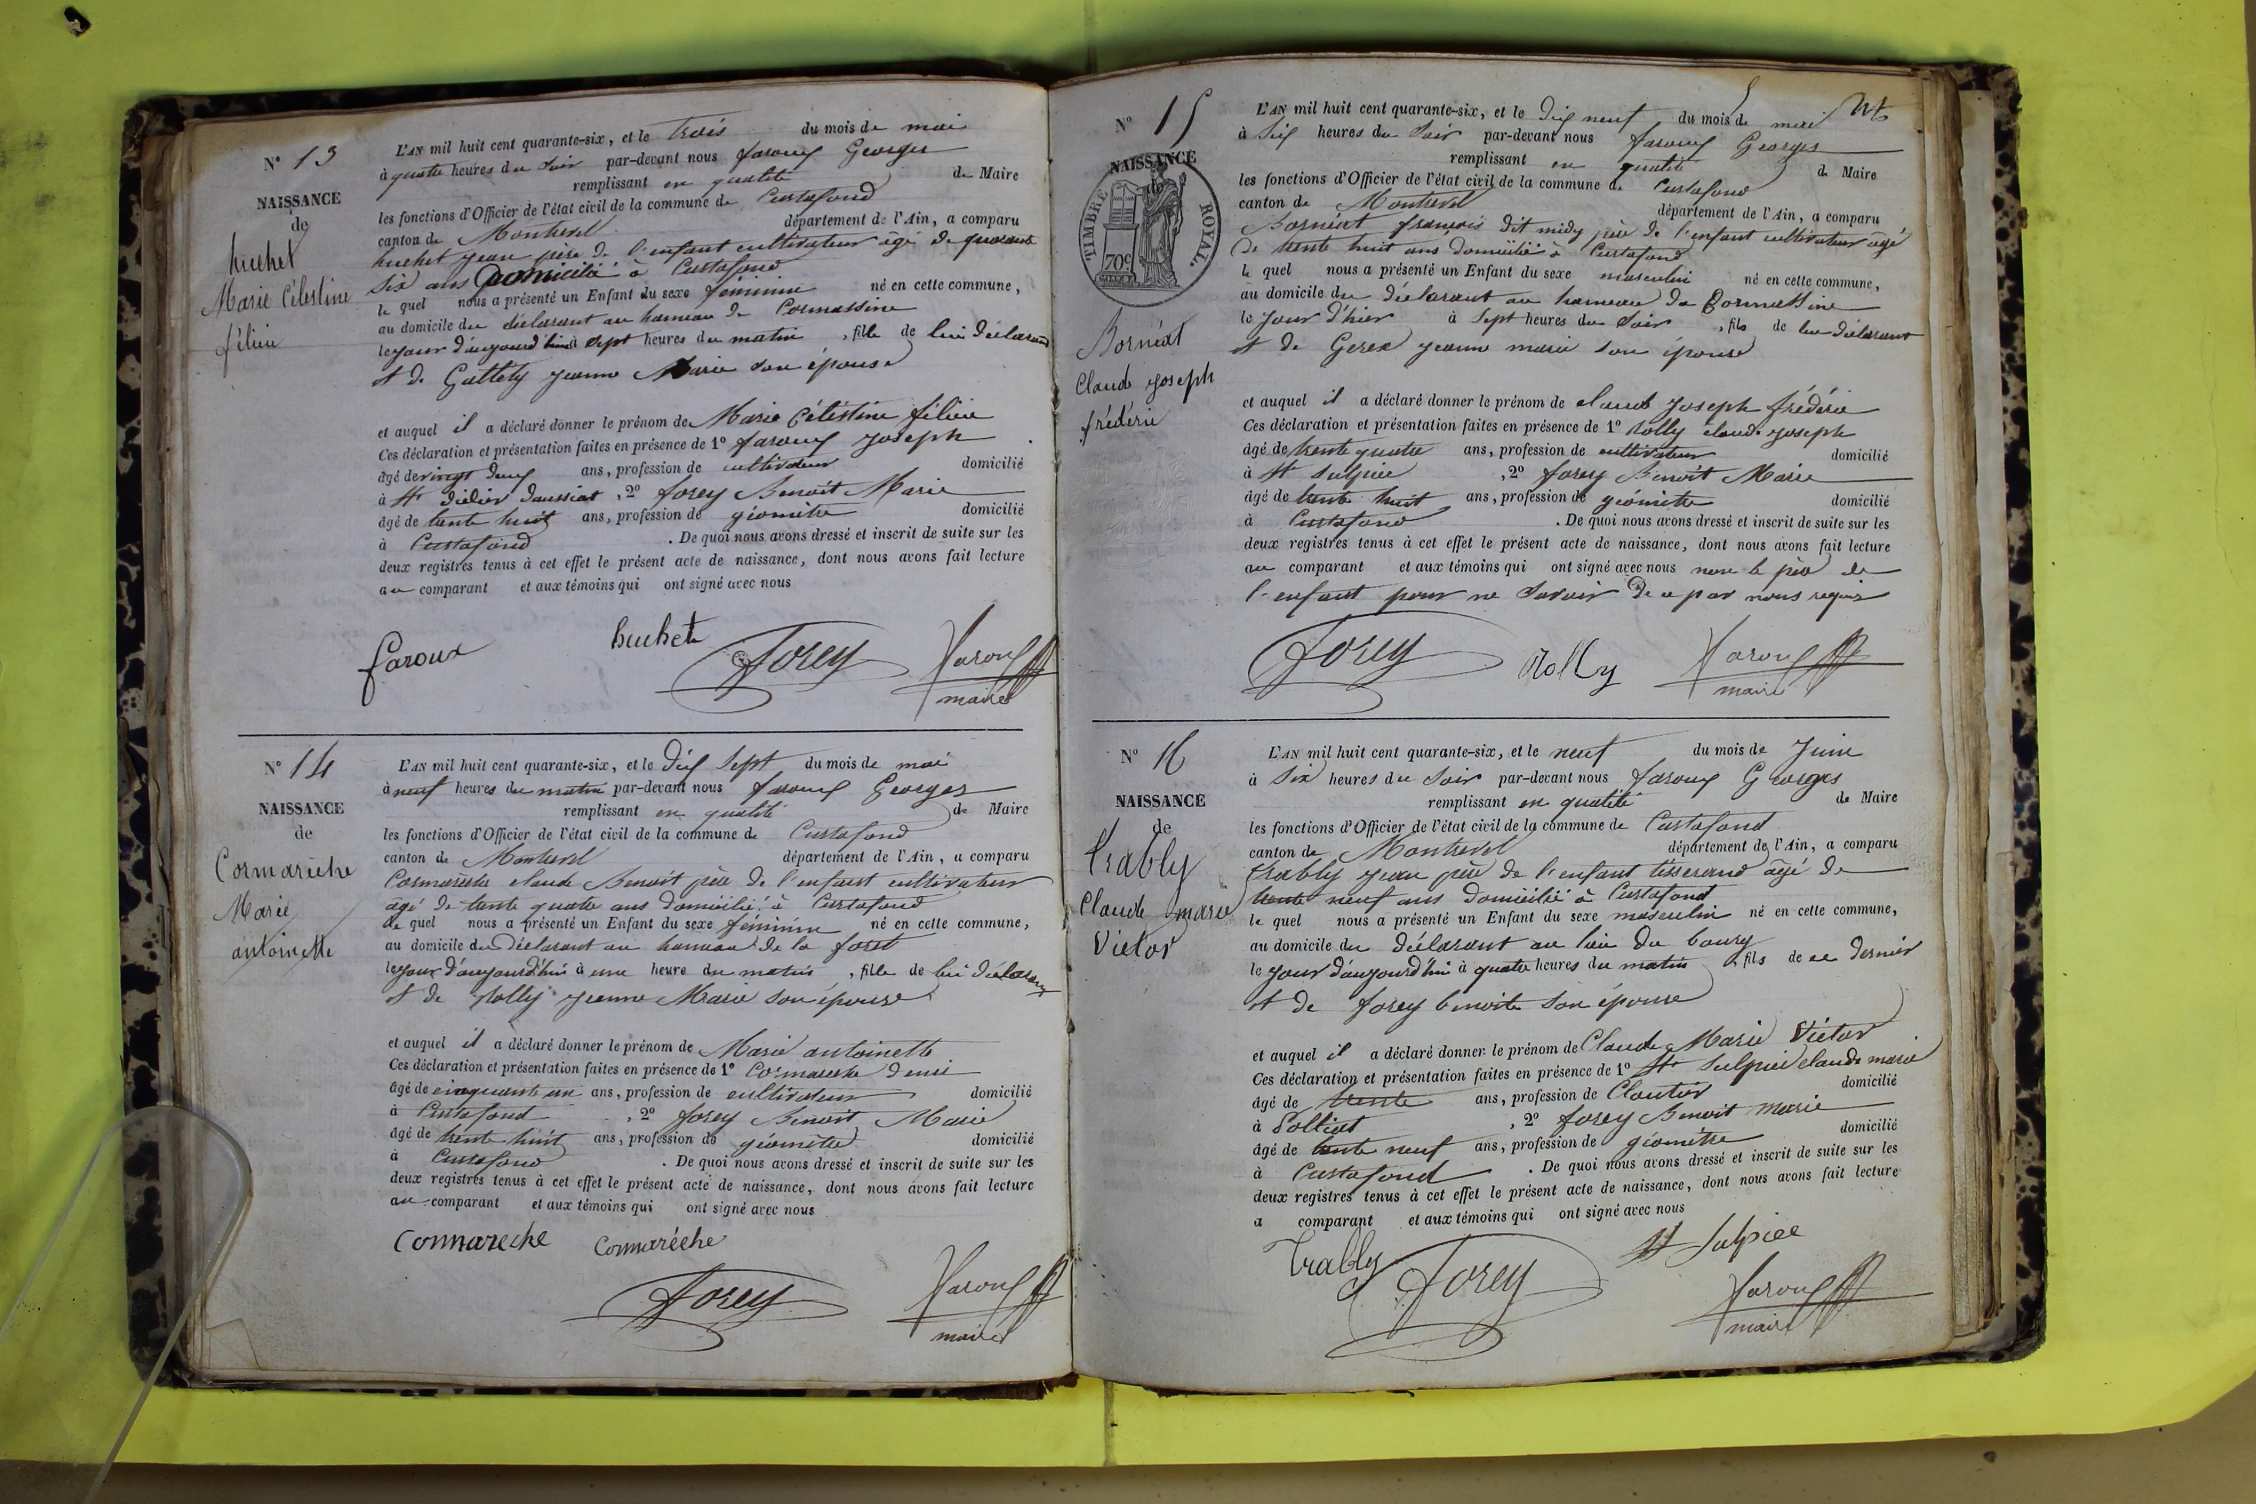 N° 13
NAISSANCE
de
huchet
Marie Célestine
félicie
L'AN mil huit cent quarante-six, et le trois du mois de mai
à quatre heures du Soir par-devant nous faroux Georges
remplissant en qualité de Maire
les fonctions d'Officier de l'état civil de la commune de Curtafond
canton de Montrevel département de l'Ain, a comparu
huchet jean père de l'enfant cultivateur âgé de quarante
six ans domicilié à Curtafond
le quel nous a présenté un Enfant du sexe féminin né en cette commune,
au domicile du déclarant au hameau de Cormassine
le jour d'aujourd'hui à sept heures du matin, fille de lui déclarant
et de Gallety jeanne Marie son épouse
et auquel il a déclaré donner le prénom de Marie Célestine félicie
Ces déclaration et présentation faites en présence de 1° faroux joseph
âgé de vingt deux ans, profession de cultivateur domicilié
à St didier daussiat, 2° forey Benoit Marie
âgé de trente huit ans, profession de géomètre domicilié
à Curtafond. De quoi nous avons dressé et inscrit de suite sur les
deux registres tenus à cet effet le présent acte de naissance, dont nous avons fait lecture
au comparant et aux témoins qui ont signé avec nous
faroux huchet forey faroux
maire
N° 14
NAISSANCE
de
Cormarèche
Marie
antoinette
L'AN mil huit cent quarante-six, et le dix sept du mois de mai
à neuf heures du matin par-devant nous faroux Georges
remplissant en qualité de Maire
les fonctions d'Officier de l'état civil de la commune de Curtafond
canton de Montrevel département de l'Ain, a comparu
Cormarèche claude Benoit père de l'enfant cultivateur
âgé de trente quatre ans domicilié à Curtafond
le quel nous a présenté un Enfant du sexe féminin né en cette commune,
au domicile du déclarant au hameau de la foret
le jour d'aujourd'hui à une heure du matin, fille de lui déclarant
et de jolly jeanne Marie son épouse
et auquel il a déclaré donner le prénom de Marie antoinette
Ces déclaration et présentation faites en présence de 1° Cormareche denis
âgé de cinquante un ans, profession de cultivateur domicilié
à Curtafond, 2° forey Benoit Marie
âgé de trente huit ans, profession de géomètre domicilié
à Curtafond. De quoi nous avons dressé et inscrit de suite sur les
deux registres tenus à cet effet le présent acte de naissance, dont nous avons fait lecture
au comparant et aux témoins qui ont signé avec nous
Cormareche Cormarêche
forey faroux
maire
N° 15
NAISSANCE
de
TIMBRE ROYAL.
70c
Bornéat
Claude joseph
frédéric
L'AN mil huit cent quarante-six, et le dix neuf du mois de mai
à six heures du Soir par-devant nous faroux Georges
remplissant en qualité de Maire
les fonctions d'Officier de l'état civil de la commune de Curtafond
canton de Montrevel département de l'Ain, a comparu
Bornéat françois dit midy père de l'enfant cultivateur âgé
de trente huit ans domicilié à Curtafond
le quel nous a présenté un Enfant du sexe masculin né en cette commune,
au domicile du déclarant au hameau de Cormassine
le jour d'hier à sept heures du Soir, fils de lui déclarant
et de Gerex jeanne marie son épouse
et auquel il a déclaré donner le prénom de claude joseph frédéric
Ces déclaration et présentation faites en présence de 1° jolly claude joseph
âgé de trente quatre ans, profession de cultivateur domicilié
à St Sulpice, 2° forey Benoit Marie
âgé de trente huit ans, profession de géomètre domicilié
à Curtafond. De quoi nous avons dressé et inscrit de suite sur les
deux registres tenus à cet effet le présent acte de naissance, dont nous avons fait lecture
au comparant et aux témoins qui ont signé avec nous non le père de
l'enfant pour ne Savoir de ce par nous requis
forey jolly faroux
maire
N° 16
NAISSANCE
de
trably
Claude marie
Victor
L'AN mil huit cent quarante-six, et le neuf du mois de Juin
à six heures du Soir par-devant nous faroux Georges
remplissant en qualité de Maire
les fonctions d'Officier de l'état civil de la commune de Curtafond
canton de Montrevel département de l'Ain, a comparu
trably jean père de l'enfant tisserand âgé de
trente neuf ans domicilié à Curtafond
le quel nous a présenté un Enfant du sexe masculin né en cette commune,
au domicile du déclarant au lieu du bourg
le jour d'aujourd'hui à quatre heures du matin, fils de ce dernier
et de forey benoite son épouse
et auquel il a déclaré donner le prénom de Claude Marie Victor
Ces déclaration et présentation faites en présence de 1° St Sulpice claude marie
âgé de trente ans, profession de Cloutier domicilié
à Polliat, 2° forey Benoit marie
âgé de trente neuf ans, profession de géomètre domicilié
à Curtafond. De quoi nous avons dressé et inscrit de suite sur les
deux registres tenus à cet effet le présent acte de naissance, dont nous avons fait lecture
a comparant et aux témoins qui ont signé avec nous
trably forey St Sulpice
faroux
maire